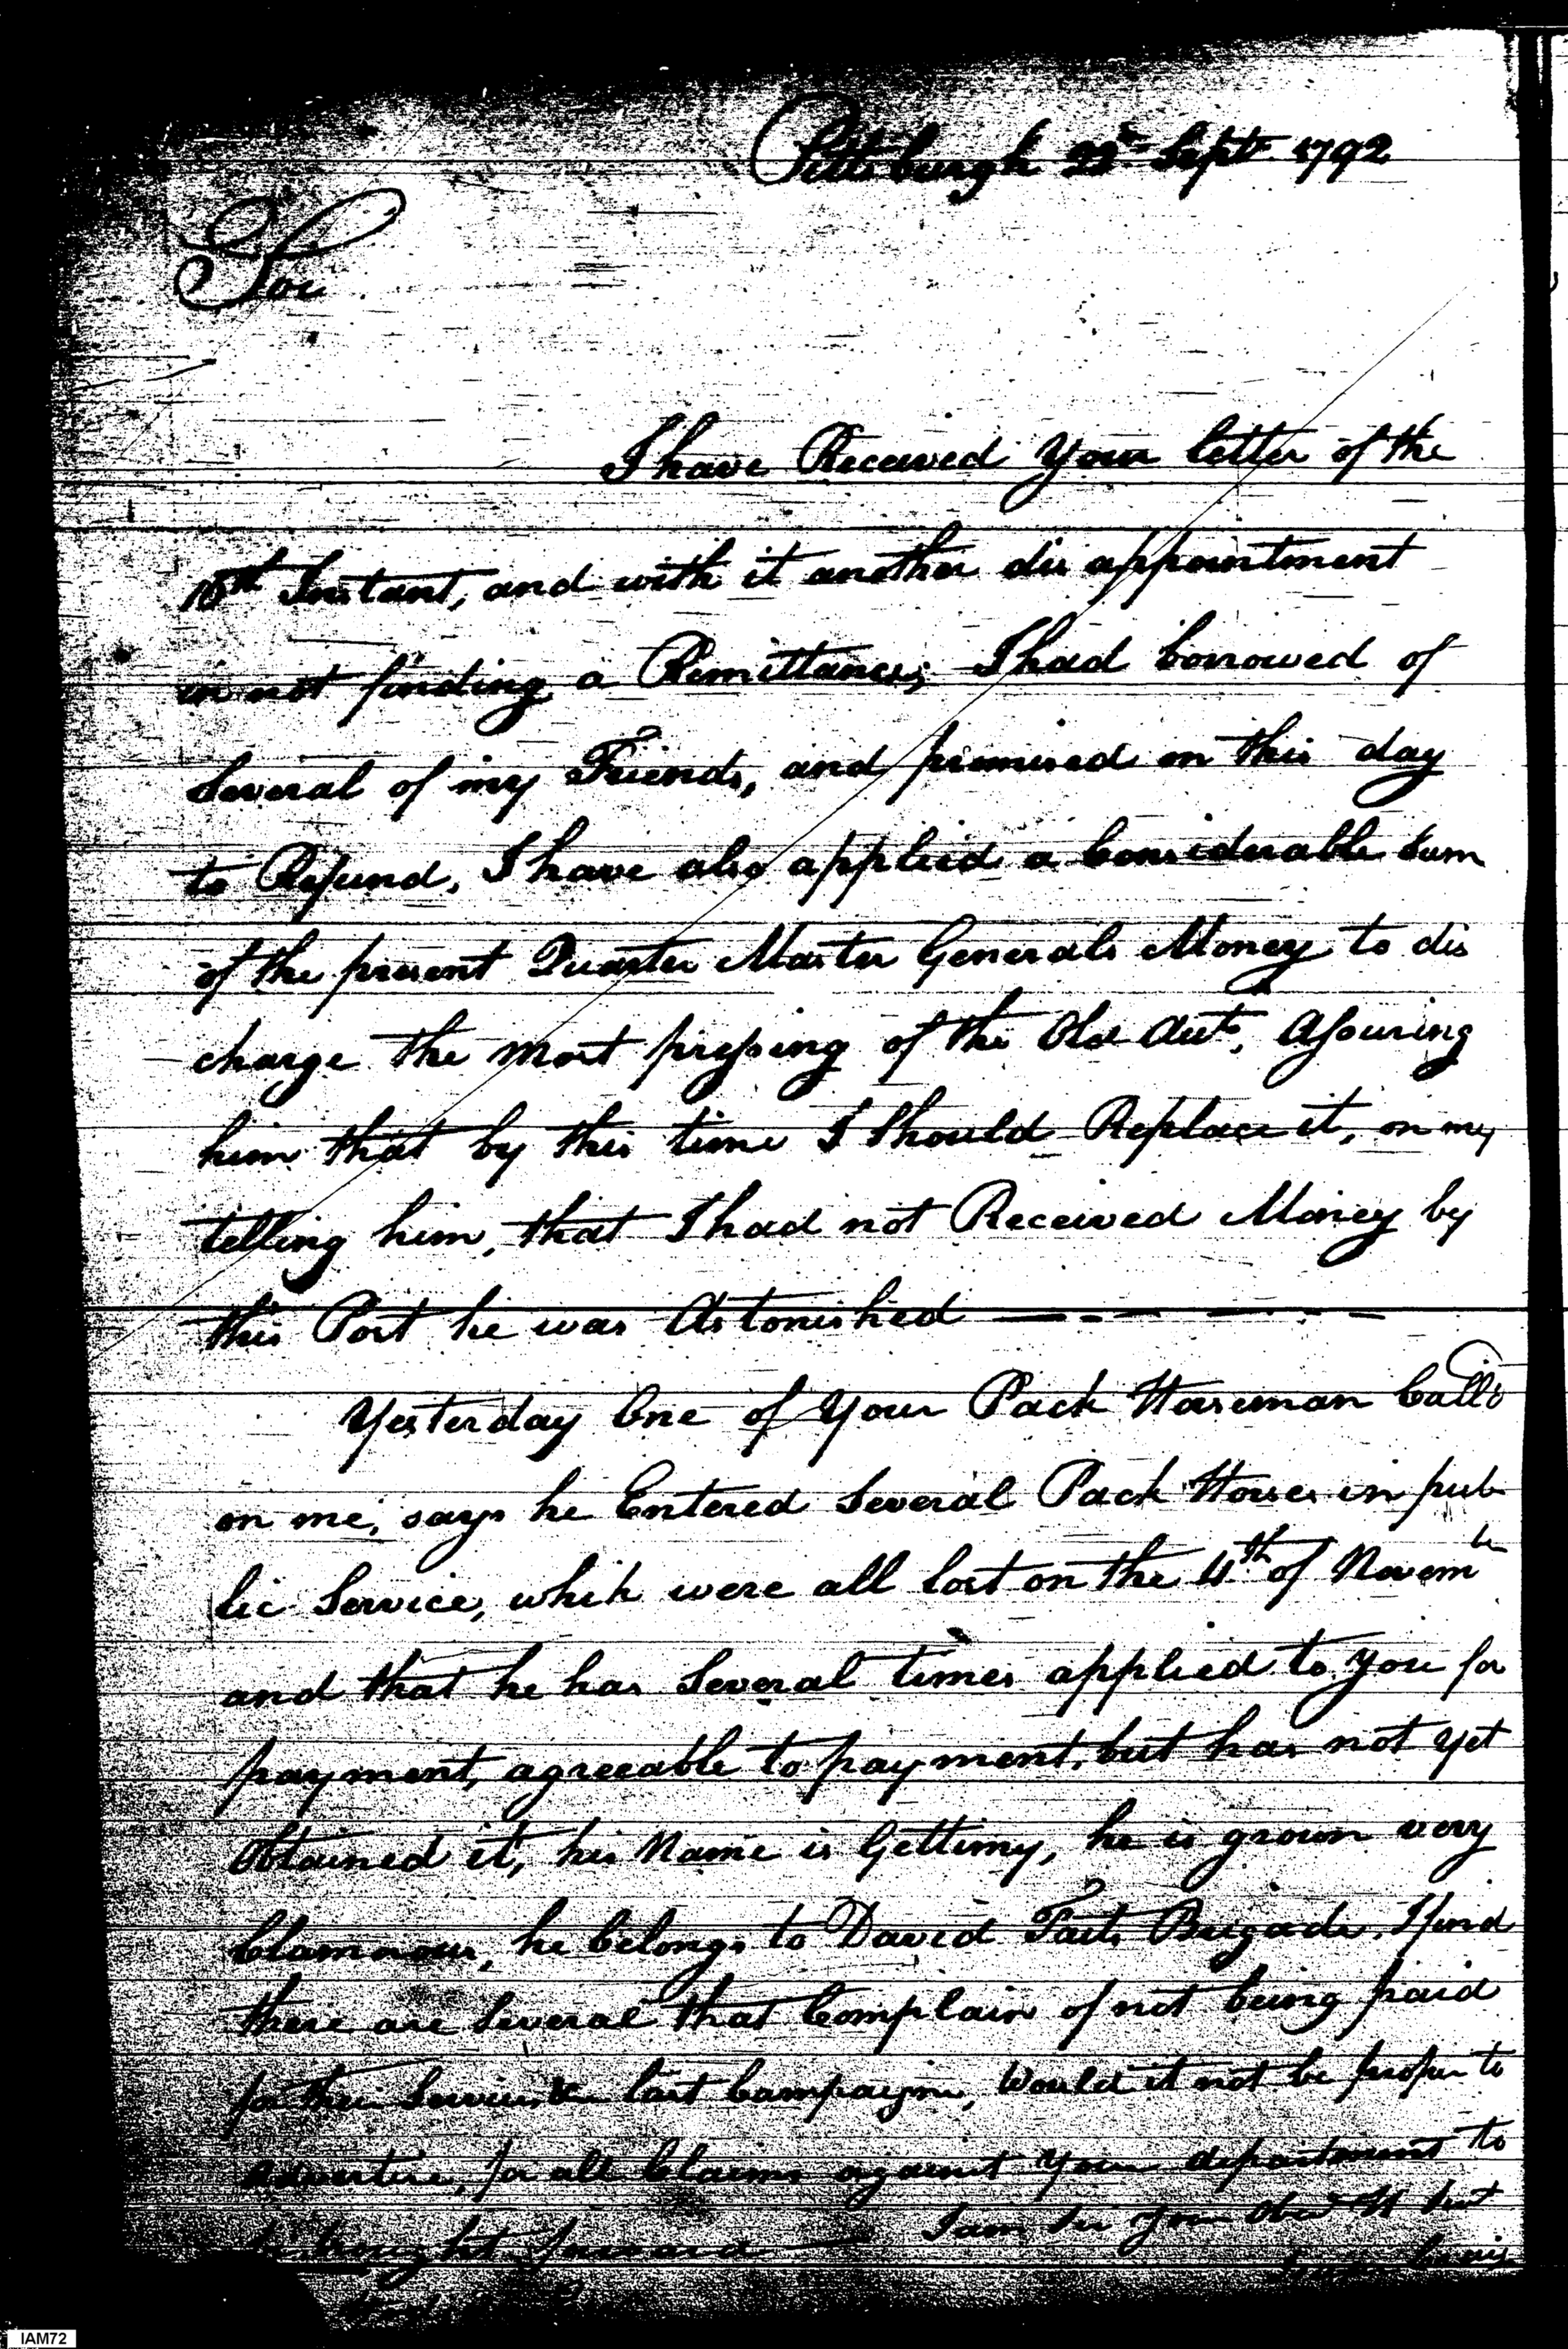 Pittsburgh Sept 1792
Sir
I have Received Your letter of the
Instant, and with it another dis appointment
in not finding a Remittance; I had borrowed of
Several of my Friends, and promised on this day
to Refund, I have also applied a Considerable Sum
of the present Quarter Master Generals Money to dis
charge the most pressing of the Old Acts, Assuring
him that by this time I Should Replace it, on my
telling him, that I had not Received Money by
this Post he was Astonished
Yesterday One of Your Pack Horseman Call'd
on me, says he Entered Several Pack Horses in pub
lic Service, which were all lost on the 4th of Novembr
and that he has Several times applied to you for
payment, agreeable to payment, but has not yet
Obtained it, his Name is Gettimy, he is grown very
Clamorous, he belongs to David Taits Brigade, I find
there are Several that Complain of not being paid
for their Services last Campaign, Would it not be proper to
advertise, for all Claims against Your department to
be brought forward I am Sir Your Obed H Sert
Craig
IAM72